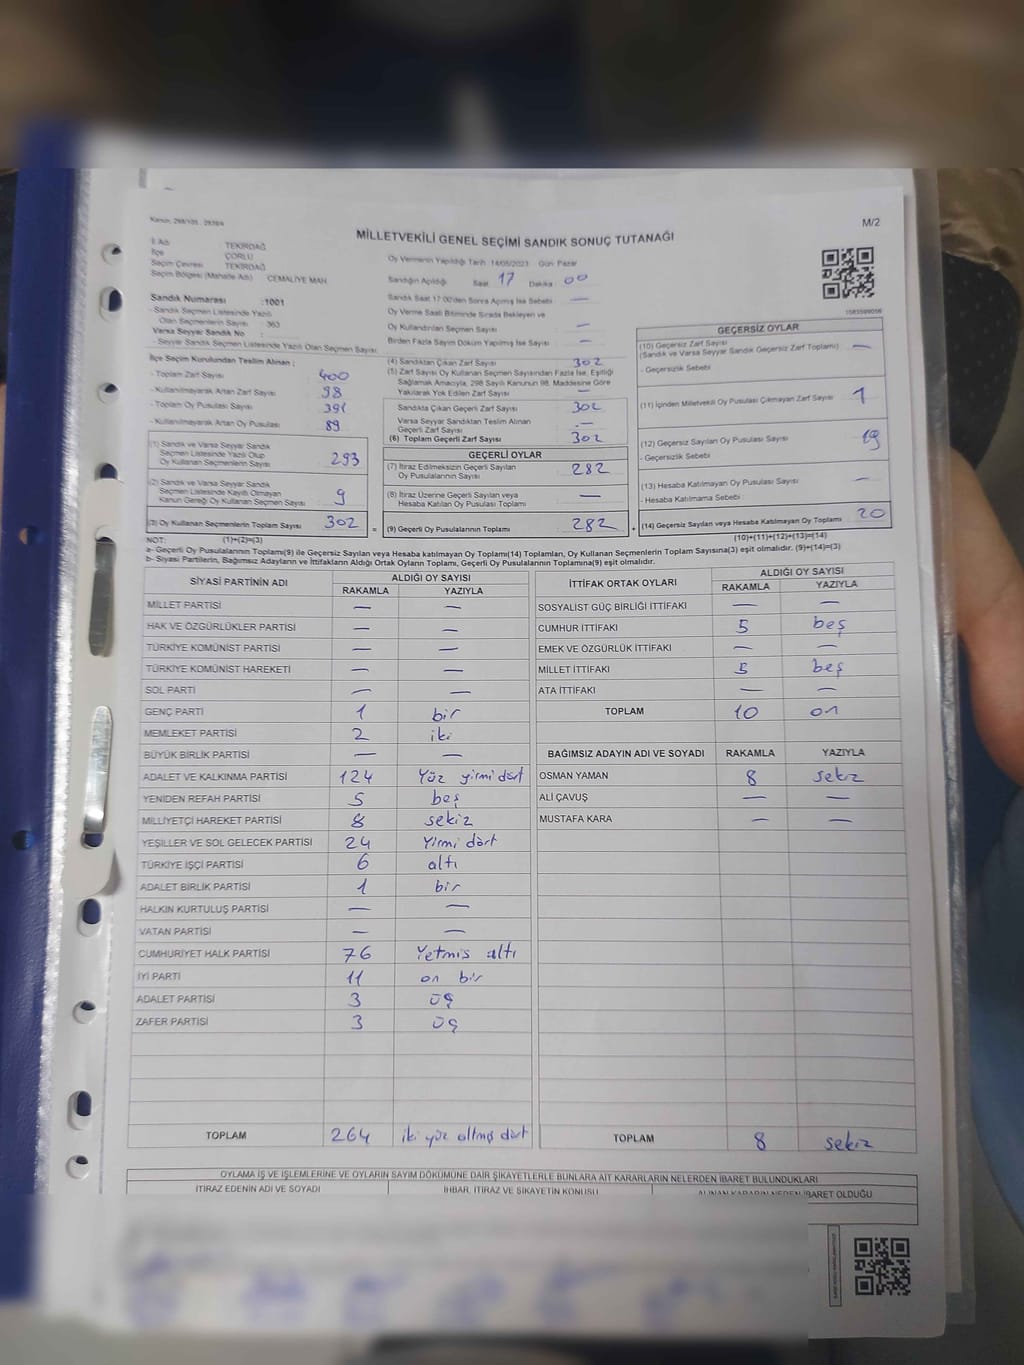 Kanun: 298/105 - 2839/4
M/2
MİLLETVEKİLİ GENEL SEÇİMİ SANDIK SONUÇ TUTANAĞI
İl Adı TEKİRDAĞ
İlçe ÇORLU
Seçim Çevresi TEKİRDAĞ
Seçim Bölgesi (Mahalle Adı) CEMALİYE MAH
Oy Vermenin Yapıldığı Tarih 14/05/2023 Gün: Pazar
Sandığın Açıldığı Saat 17 Dakika 00
Sandık Saat 17:00'den Sonra Açılmış İse Sebebi —
Oy Verme Saati Bitiminde Sırada Bekleyen ve
Oy Kullandırılan Seçmen Sayısı —
Birden Fazla Sayım Döküm Yapılmış İse Sayısı —
Sandık Numarası :1001
- Sandık Seçmen Listesinde Yazılı
Olan Seçmenlerin Sayısı : 363
Varsa Seyyar Sandık No :
- Seyyar Sandık Seçmen Listesinde Yazılı Olan Seçmen Sayısı:
İlçe Seçim Kurulundan Teslim Alınan ;
- Toplam Zarf Sayısı 400
- Kullanılmayarak Artan Zarf Sayısı 98
- Toplam Oy Pusulası Sayısı 391
- Kullanılmayarak Artan Oy Pusulası 89
(1) Sandık ve Varsa Seyyar Sandık
Seçmen Listesinde Yazılı Olup
Oy Kullanan Seçmenlerin Sayısı 293
(2) Sandık ve Varsa Seyyar Sandık
Seçmen Listesinde Kayıtlı Olmayan
Kanun Gereği Oy Kullanan Seçmen Sayısı 9
(3) Oy Kullanan Seçmenlerin Toplam Sayısı 302 =
(4) Sandıktan Çıkan Zarf Sayısı 302
(5) Zarf Sayısı Oy Kullanan Seçmen Sayısından Fazla İse, Eşitliği
Sağlamak Amacıyla, 298 Sayılı Kanunun 98. Maddesine Göre
Yakılarak Yok Edilen Zarf Sayısı —
Sandıkta Çıkan Geçerli Zarf Sayısı 302
Varsa Seyyar Sandıktan Teslim Alınan
Geçerli Zarf Sayısı —
(6) Toplam Geçerli Zarf Sayısı 302
GEÇERLİ OYLAR
(7) İtiraz Edilmeksizin Geçerli Sayılan
Oy Pusulalarının Sayısı 282
(8) İtiraz Üzerine Geçerli Sayılan veya
Hesaba Katılan Oy Pusulası Toplamı —
(9) Geçerli Oy Pusulalarının Toplamı 282 +
GEÇERSİZ OYLAR
(10) Geçersiz Zarf Sayısı
(Sandık ve Varsa Seyyar Sandık Geçersiz Zarf Toplamı) —
- Geçersizlik Sebebi
(11) İçinden Milletvekili Oy Pusulası Çıkmayan Zarf Sayısı 1
(12) Geçersiz Sayılan Oy Pusulası Sayısı 19
- Geçersizlik Sebebi
(13) Hesaba Katılmayan Oy Pusulası Sayısı —
- Hesaba Katılmama Sebebi :
(14) Geçersiz Sayılan veya Hesaba Katılmayan Oy Toplamı 20
NOT: (1)+(2)=(3) (10)+(11)+(12)+(13)=(14)
a- Geçerli Oy Pusulalarının Toplamı(9) ile Geçersiz Sayılan veya Hesaba katılmayan Oy Toplamı(14) Toplamları, Oy Kullanan Seçmenlerin Toplam Sayısına(3) eşit olmalıdır. (9)+(14)=(3)
b- Siyasi Partilerin, Bağımsız Adayların ve İttifakların Aldığı Ortak Oyların Toplamı, Geçerli Oy Pusulalarının Toplamına(9) eşit olmalıdır.
SİYASİ PARTİNİN ADI ALDIĞI OY SAYISI
RAKAMLA YAZIYLA
MİLLET PARTİSİ — —
HAK VE ÖZGÜRLÜKLER PARTİSİ — —
TÜRKİYE KOMÜNİST PARTİSİ — —
TÜRKİYE KOMÜNİST HAREKETİ — —
SOL PARTİ — —
GENÇ PARTİ 1 bir
MEMLEKET PARTİSİ 2 iki
BÜYÜK BİRLİK PARTİSİ — —
ADALET VE KALKINMA PARTİSİ 124 Yüz yirmi dört
YENİDEN REFAH PARTİSİ 5 beş
MİLLİYETÇİ HAREKET PARTİSİ 8 sekiz
YEŞİLLER VE SOL GELECEK PARTİSİ 24 Yirmi dört
TÜRKİYE İŞÇİ PARTİSİ 6 altı
ADALET BİRLİK PARTİSİ 1 bir
HALKIN KURTULUŞ PARTİSİ — —
VATAN PARTİSİ — —
CUMHURİYET HALK PARTİSİ 76 Yetmis altı
İYİ PARTİ 11 on bir
ADALET PARTİSİ 3 üç
ZAFER PARTİSİ 3 üç
TOPLAM 264 iki yüz altmış dört
İTTİFAK ORTAK OYLARI ALDIĞI OY SAYISI
RAKAMLA YAZIYLA
SOSYALİST GÜÇ BİRLİĞİ İTTİFAKI — —
CUMHUR İTTİFAKI 5 beş
EMEK VE ÖZGÜRLÜK İTTİFAKI — —
MİLLET İTTİFAKI 5 beş
ATA İTTİFAKI — —
TOPLAM 10 on
BAĞIMSIZ ADAYIN ADI VE SOYADI RAKAMLA YAZIYLA
OSMAN YAMAN 8 sekiz
ALİ ÇAVUŞ — —
MUSTAFA KARA — —
TOPLAM 8 sekiz
OYLAMA İŞ VE İŞLEMLERİNE VE OYLARIN SAYIM DÖKÜMÜNE DAİR ŞİKAYETLERLE BUNLARA AİT KARARLARIN NELERDEN İBARET BULUNDUKLARI
İTİRAZ EDENİN ADI VE SOYADI İHBAR, İTİRAZ VE ŞİKAYETİN KONUSU ALINAN KARARIN NEDEN İBARET OLDUĞU